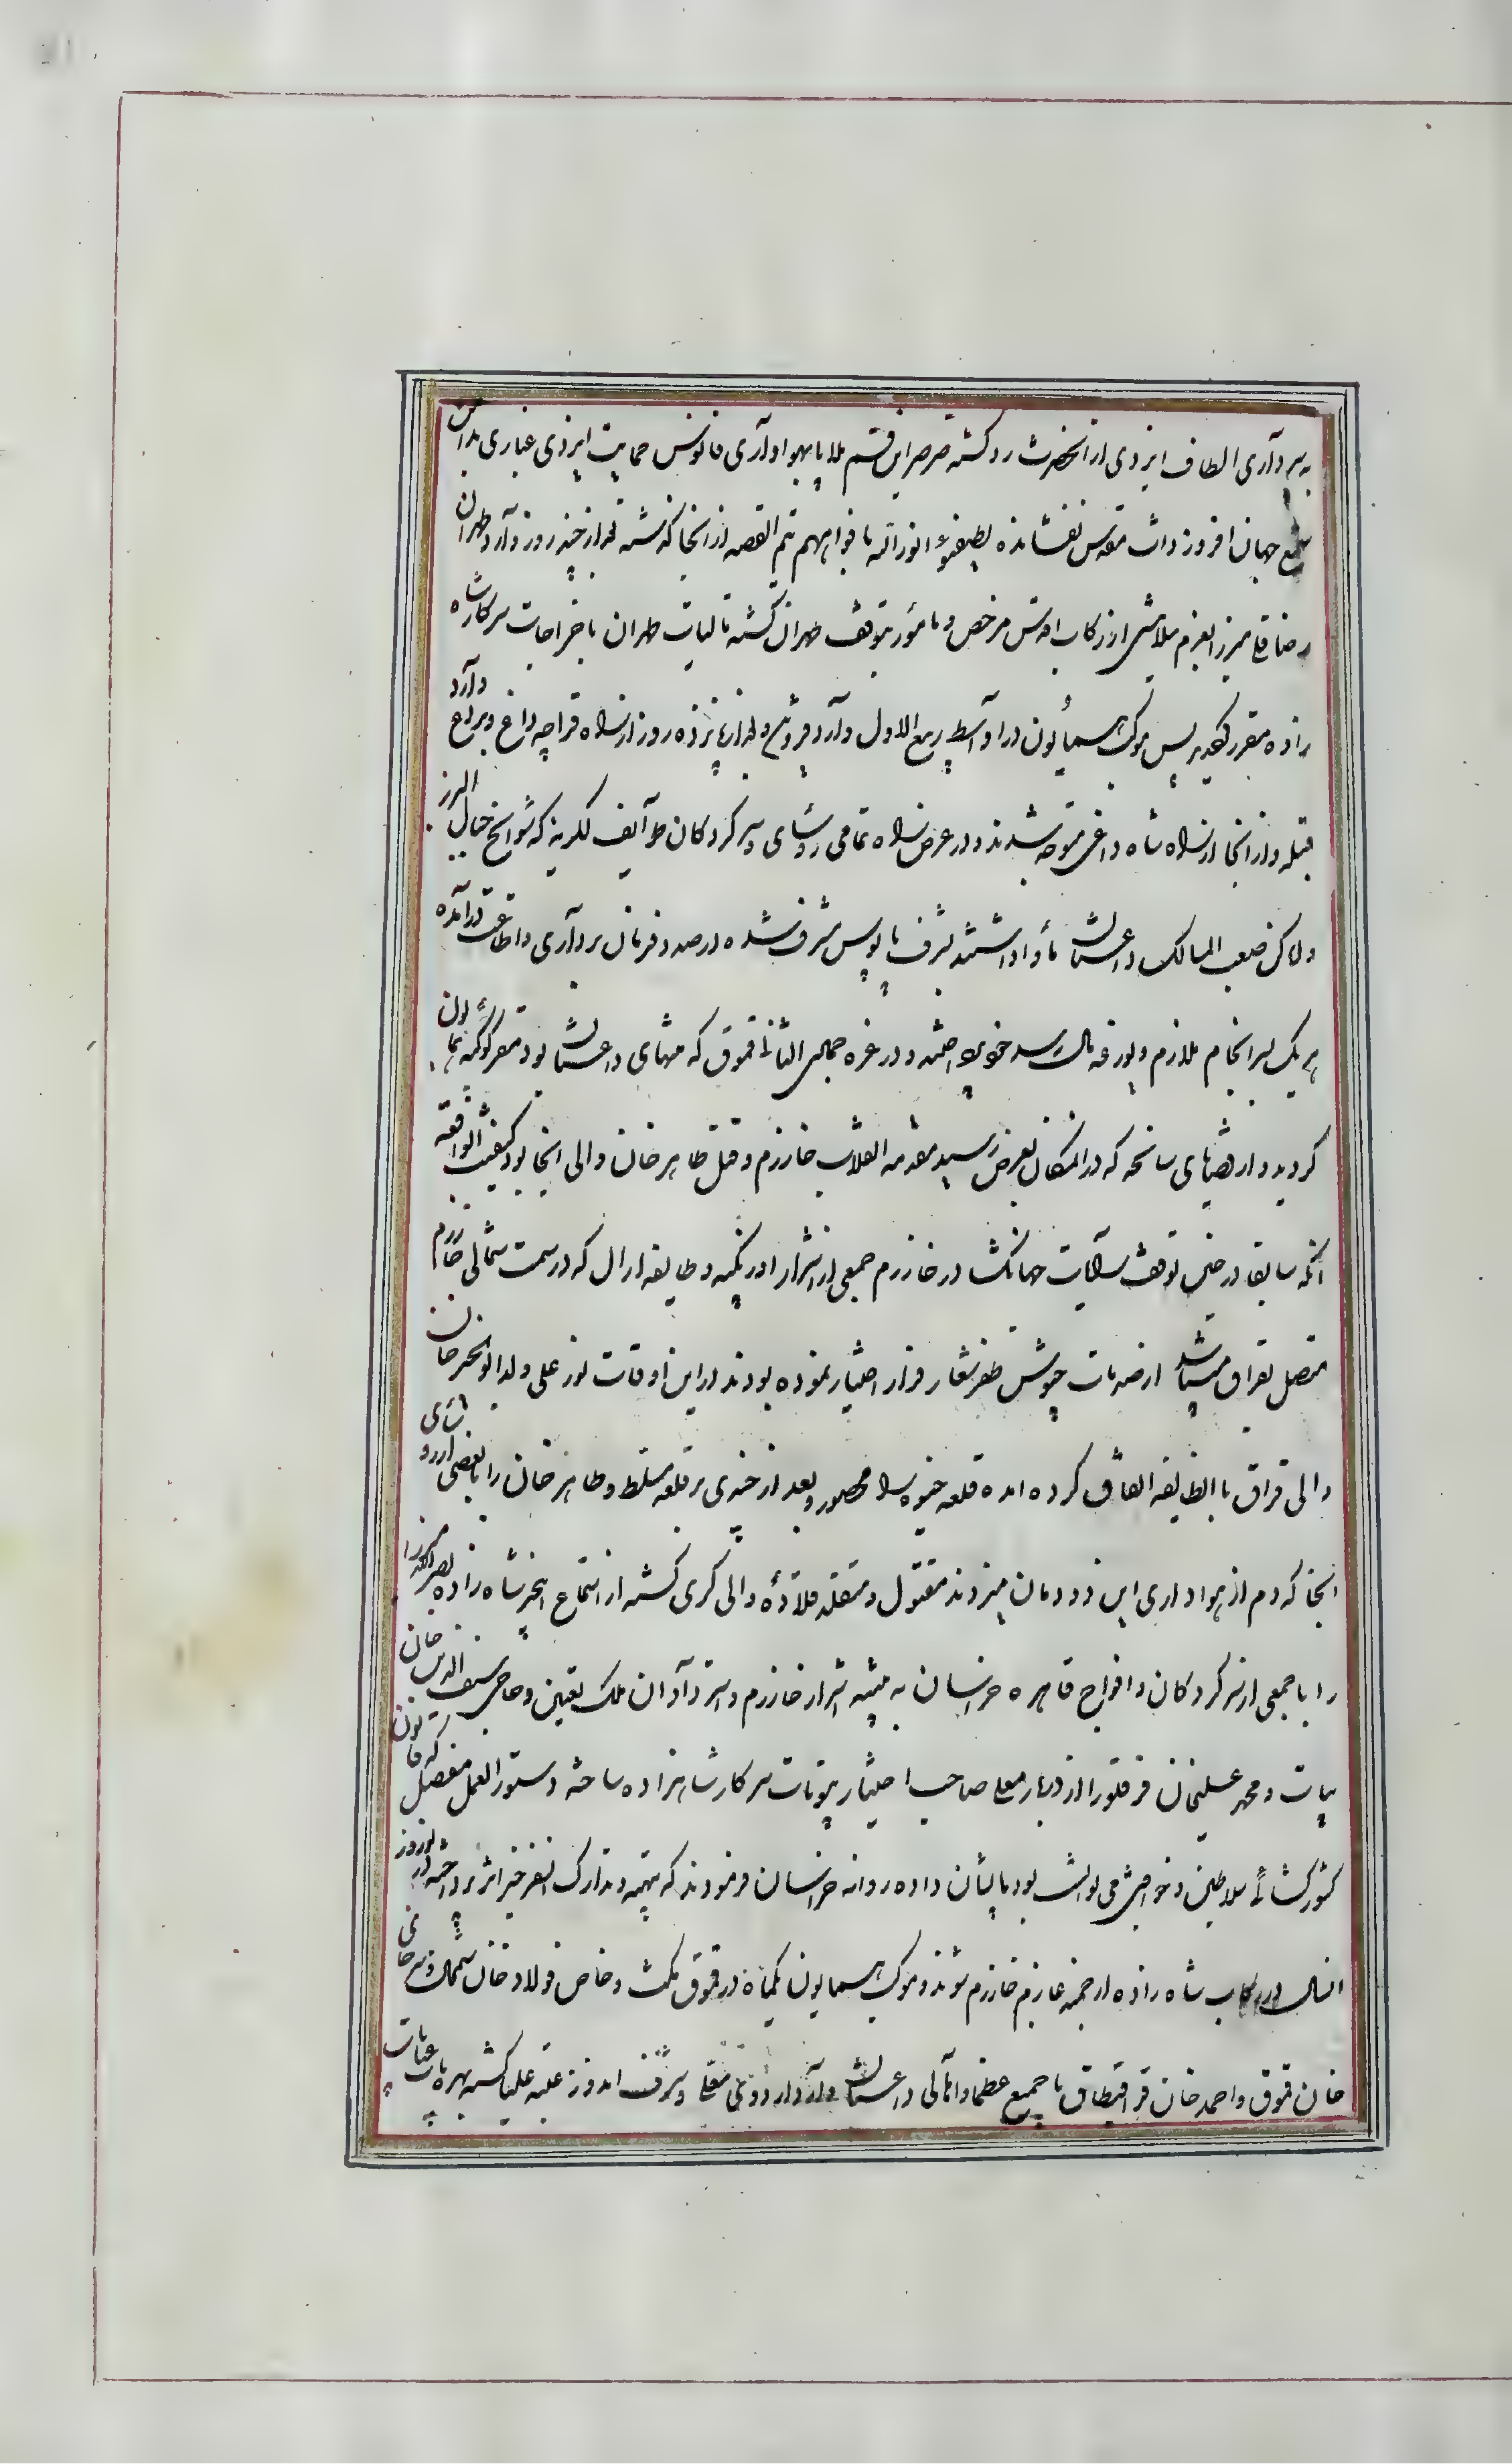 به سرداری الطاف ایزدی از انحضرت رد گشته صرصر این قسم بلایا بهواداری فانوس حمایت ایزدی غباری بدامن
شمع جهان افروز ذات مقدس نفشانده لیطفئوا نور الله بافواههم تتم القصه از انجا گذشته بعد از چند روز وارد طهران
رضاقلی میرزا بعزم از رکاب اقدس مرخص و مأمور بتوقف طهران گشته مالیات طهران باخراجات سرکار شاه
زاده مقرر گردید پس موکب همایون در اواسط ربیع الاول وارد قزوین و بعد از پانزده روز از راه قراچه داغ و بردع وارد
قبله و از انجا از راه شاه داغی متوجه شدند و در عرض راه تمامی رؤسای و سرکردکان طوایف لکزیه که شوامخ جبال البرز
و اماکن صعب المسالک داغستان مأوا داشتند بشرف پابوس مشرف شده درصدد فرمان برداری و اطاعت درآمده
هر یک بسرانجام ملازم و یورغه مال رسد خود پرداختند و در غره جمادی الثانی قموق که منتهای داغستان بود مقر کوکبه همایون
گردید و از قضایای سانحه که در انمکان بعرض رسید مقدمه انقلاب خارزم و قتل طاهر خان والی انجا بود کیفیت الواقعه
انکه سابقا در حین توقف رایات جهانگشا در خارزم جمعی از اشرار اوزبکیه و طایفه ارال که در سمت شمالی خارزم
متصل بقزاق میباشد از صدمات جیوش ظفر شعار فرار اختیار نموده بودند در این اوقات نور علی ولد ابوالخیر خان
والی قزاق با انطایفه اتفاق کرده امده قلعه خیوه را محصور و بعد از چندی بر قلعه مسلط و طاهر خان را با بعضی از رؤسای
انجا که دم از هواداری این دودمان میزدند مقتول و متقلد قلاده والی کری گشته از استماع اینخبر شاه زاده نصرالله میرزا
را با جمعی از سرکردکان و افواج قاهره خراسان به تنبیه اشرار خارزم و استرداد ان ملک تعیین و حاجی سیف الدین خان
بیات و محمد علیخان قرقلو را از دربار معلی صاحب اختیار بیوتات سرکار شاهزاده ساخته دستورالعمل مفصل که قانون
کشورکشائی سلاطین و خواقین می توانست بود بایشان داده روانه خراسان فرمودند که بتهیه و تدارک انسفر خیر اثر پرداخته در نوروز
انسال در رکاب شاه زاده ارجمند عازم خارزم شوند و موکب همایون یکماه در قموق مکث و خاص فولاد خان شمخال و سرخای
خان قموق و احمد خان قراقیطاق با جمیع عظما و اهالی داغستان وارد اردوی معلی و شرف اندوز عتبه علیا گشته بهره یاب عنایات